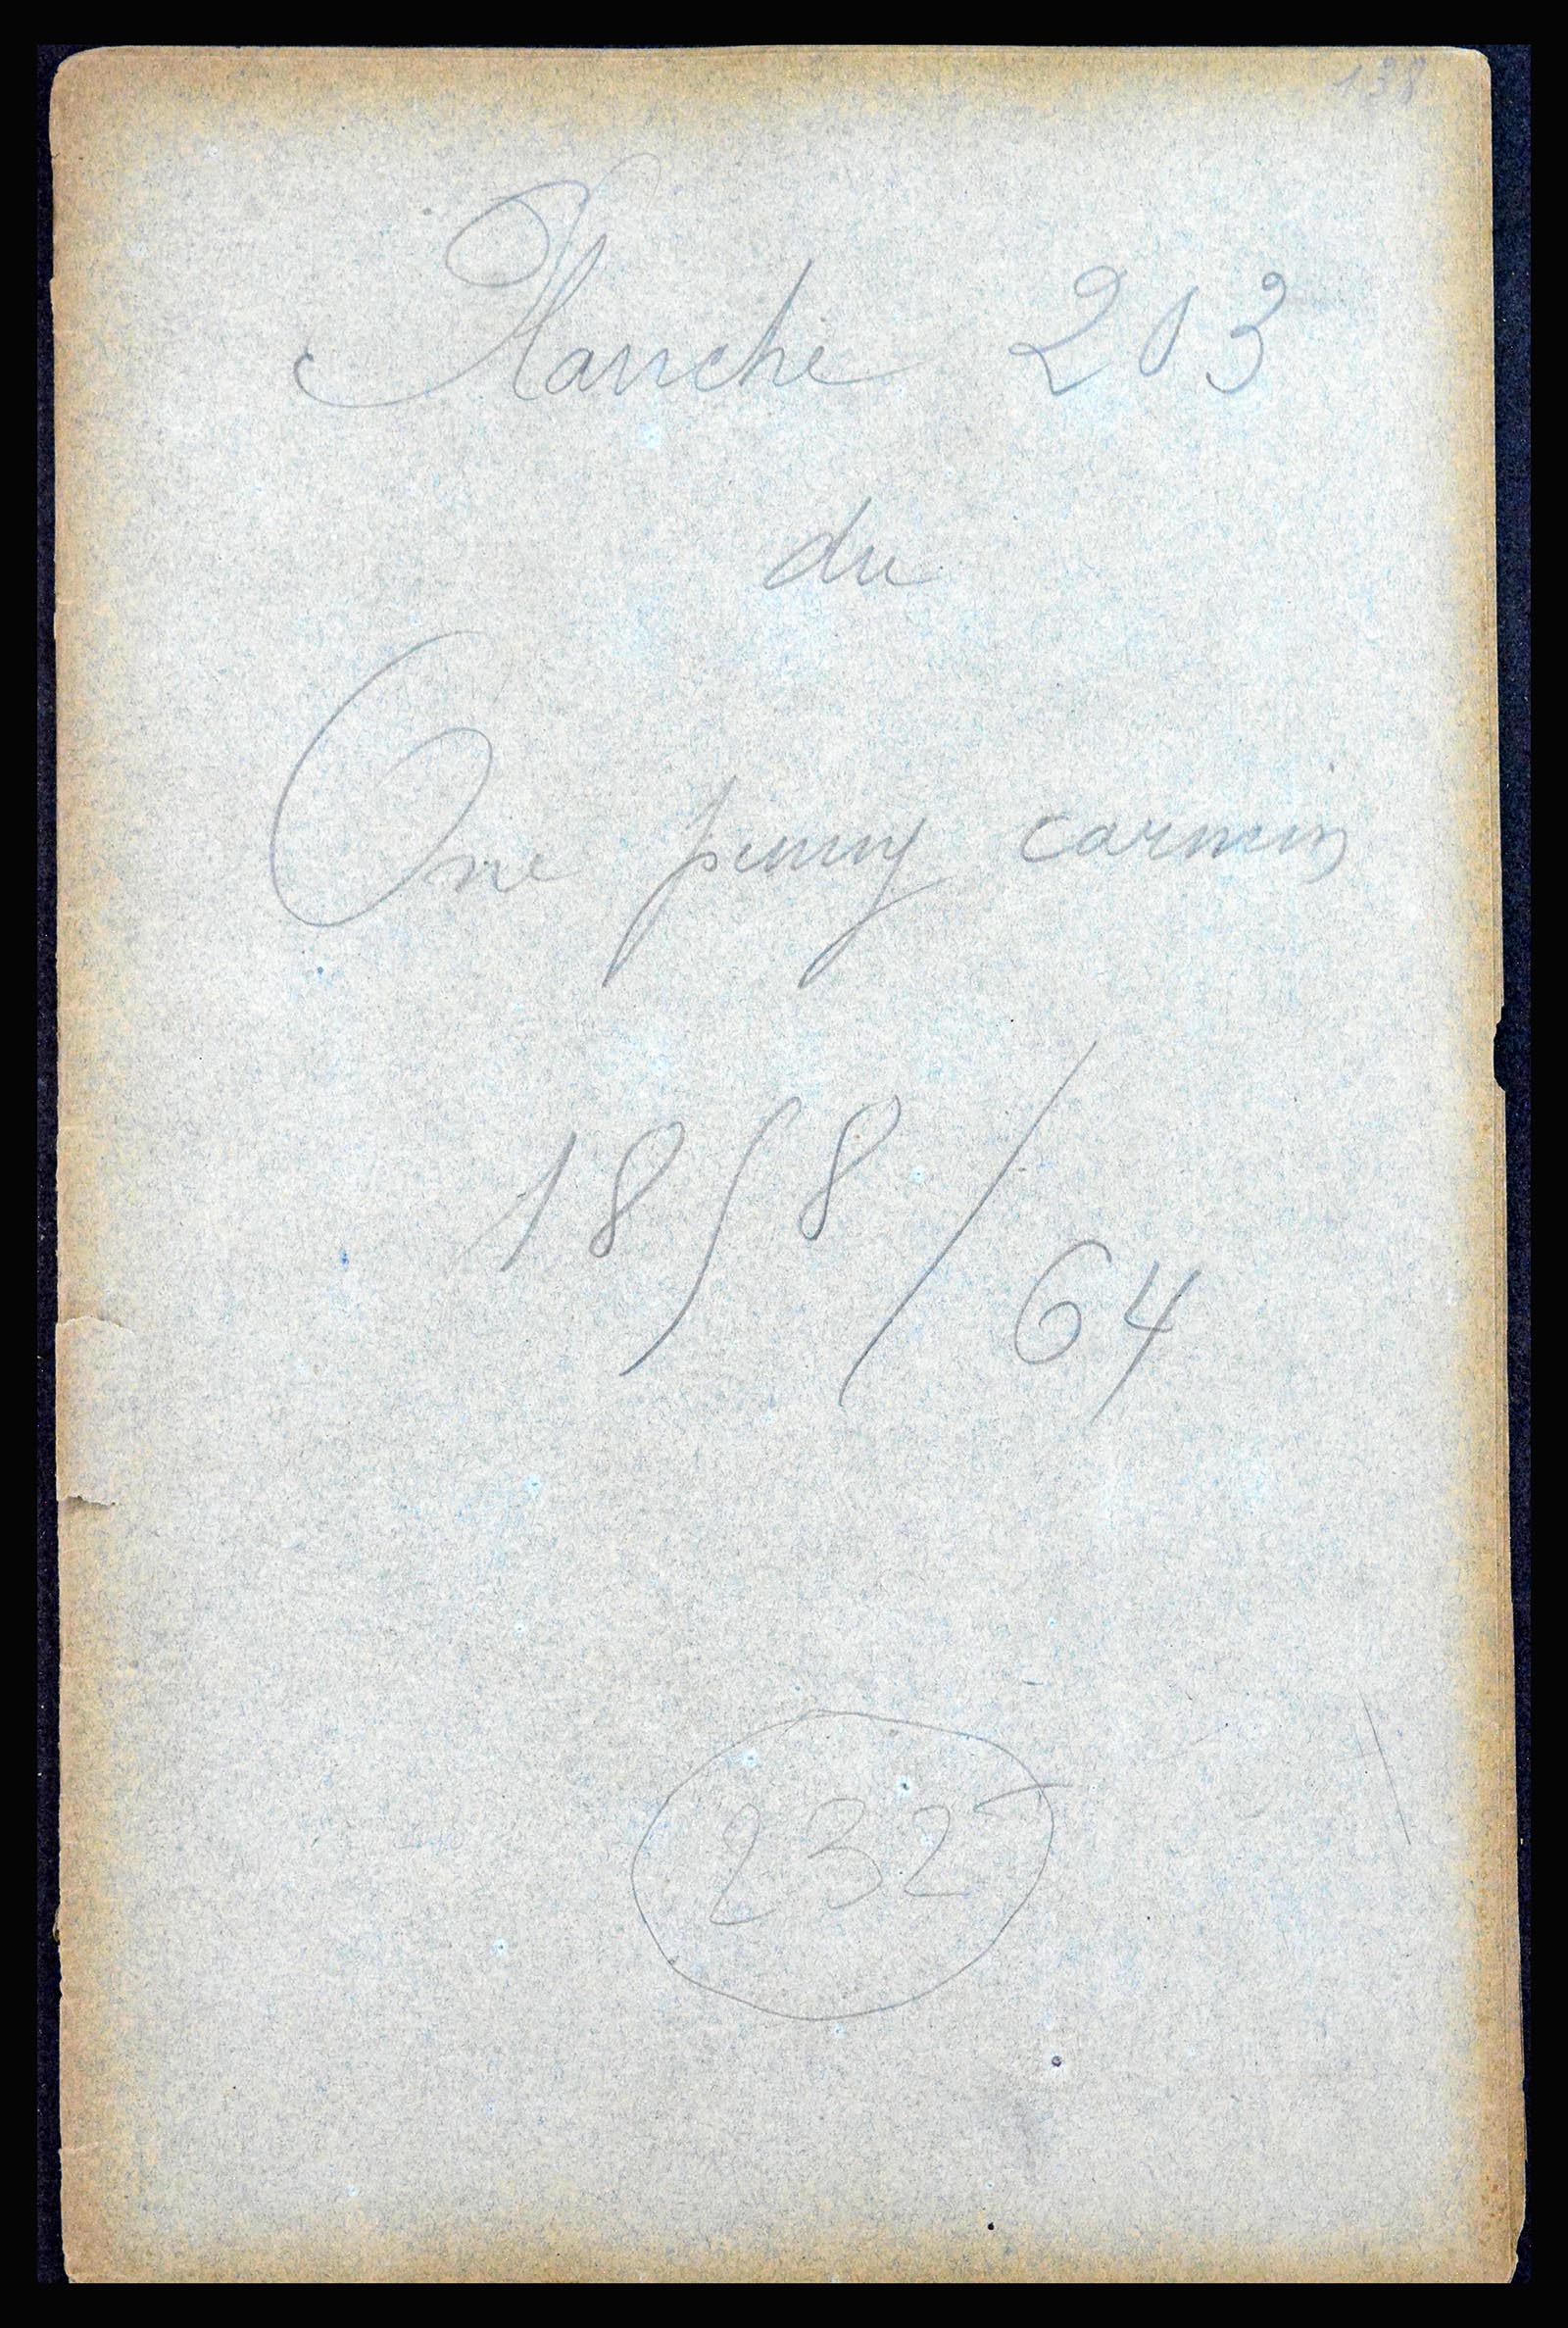 138
Planche 203
du
One penny carmin
1858/64
232